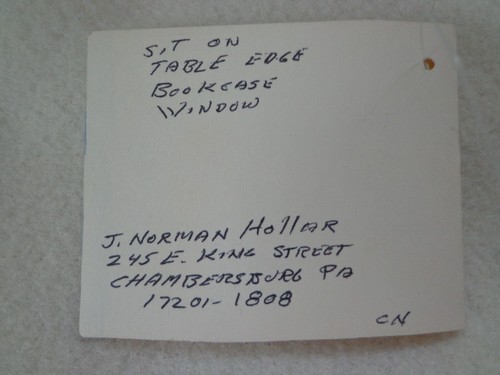 SIT ON
TABLE EDGE
BOOKCASE
WINDOW
J. NORMAN HollAR
245 E. KING STREET
CHAMBERSBURG PA
17201-1808
CN